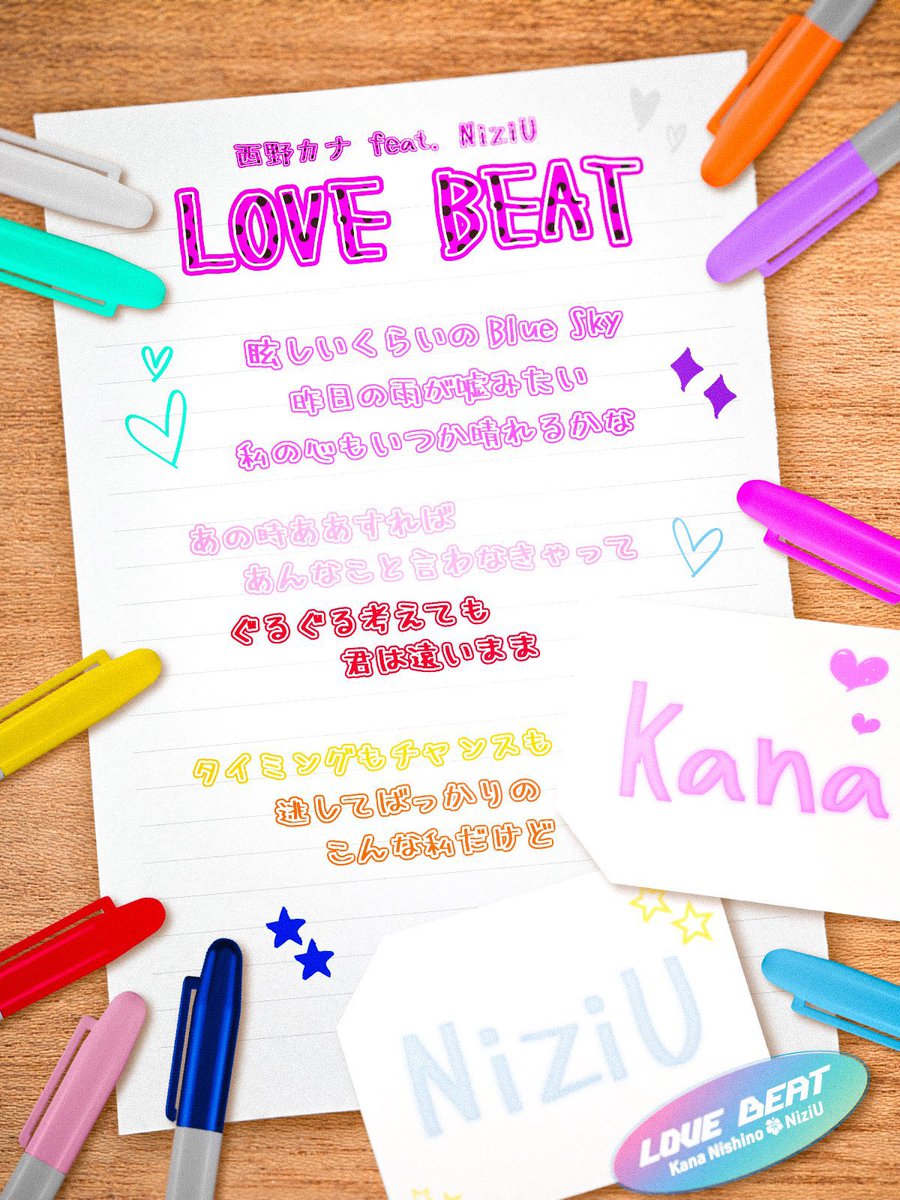 西野カナ feat. NiziU
LOVE BEAT
眩しいくらいのBlue Sky
昨日の雨が嘘みたい
私の心もいつか晴れるかな
あの時ああすれば
あんなこと言わなきゃって
ぐるぐる考えても
君は遠いまま
タイミングもチャンスも
逃してばっかりの
こんな私だけど
Kana
NiziU
LOVE BEAT
Kana Nishino NiziU